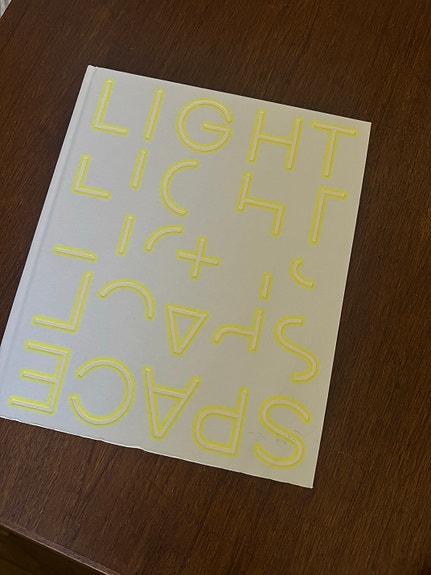 LIGHT
+
SPACE